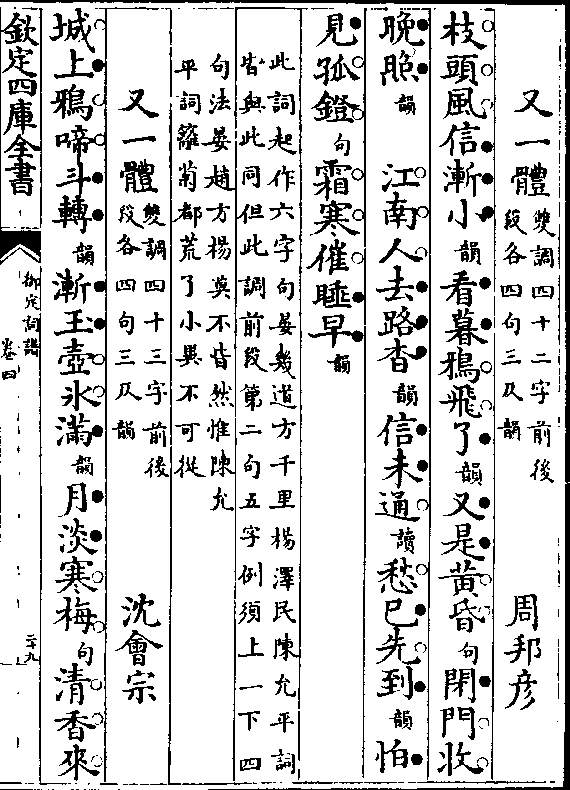 又一體 雙調四十二字前後段各四句三仄韻 周邦彥
枝頭風信漸小韻看暮鴉飛了韻又是黃昏句閉門收
晚照韻 江南人去路杳韻信未通讀愁已先到韻怕
見孤鐙句霜寒催睡早韻
此詞起作六字句晏幾道方千里楊澤民陳允平詞
皆與此同但此調前段第二句五字例須上一下四
句法晏趙方楊莫不皆然惟陳允
平詞籬菊都荒了小異不可從
又一體 雙調四十三字前後段各四句三仄韻 沈會宗
城上鴉啼斗轉韻漸玉壺氷滿韻月淡寒梅句清香來
欽定四庫全書 御定詞譜 卷四 二十九